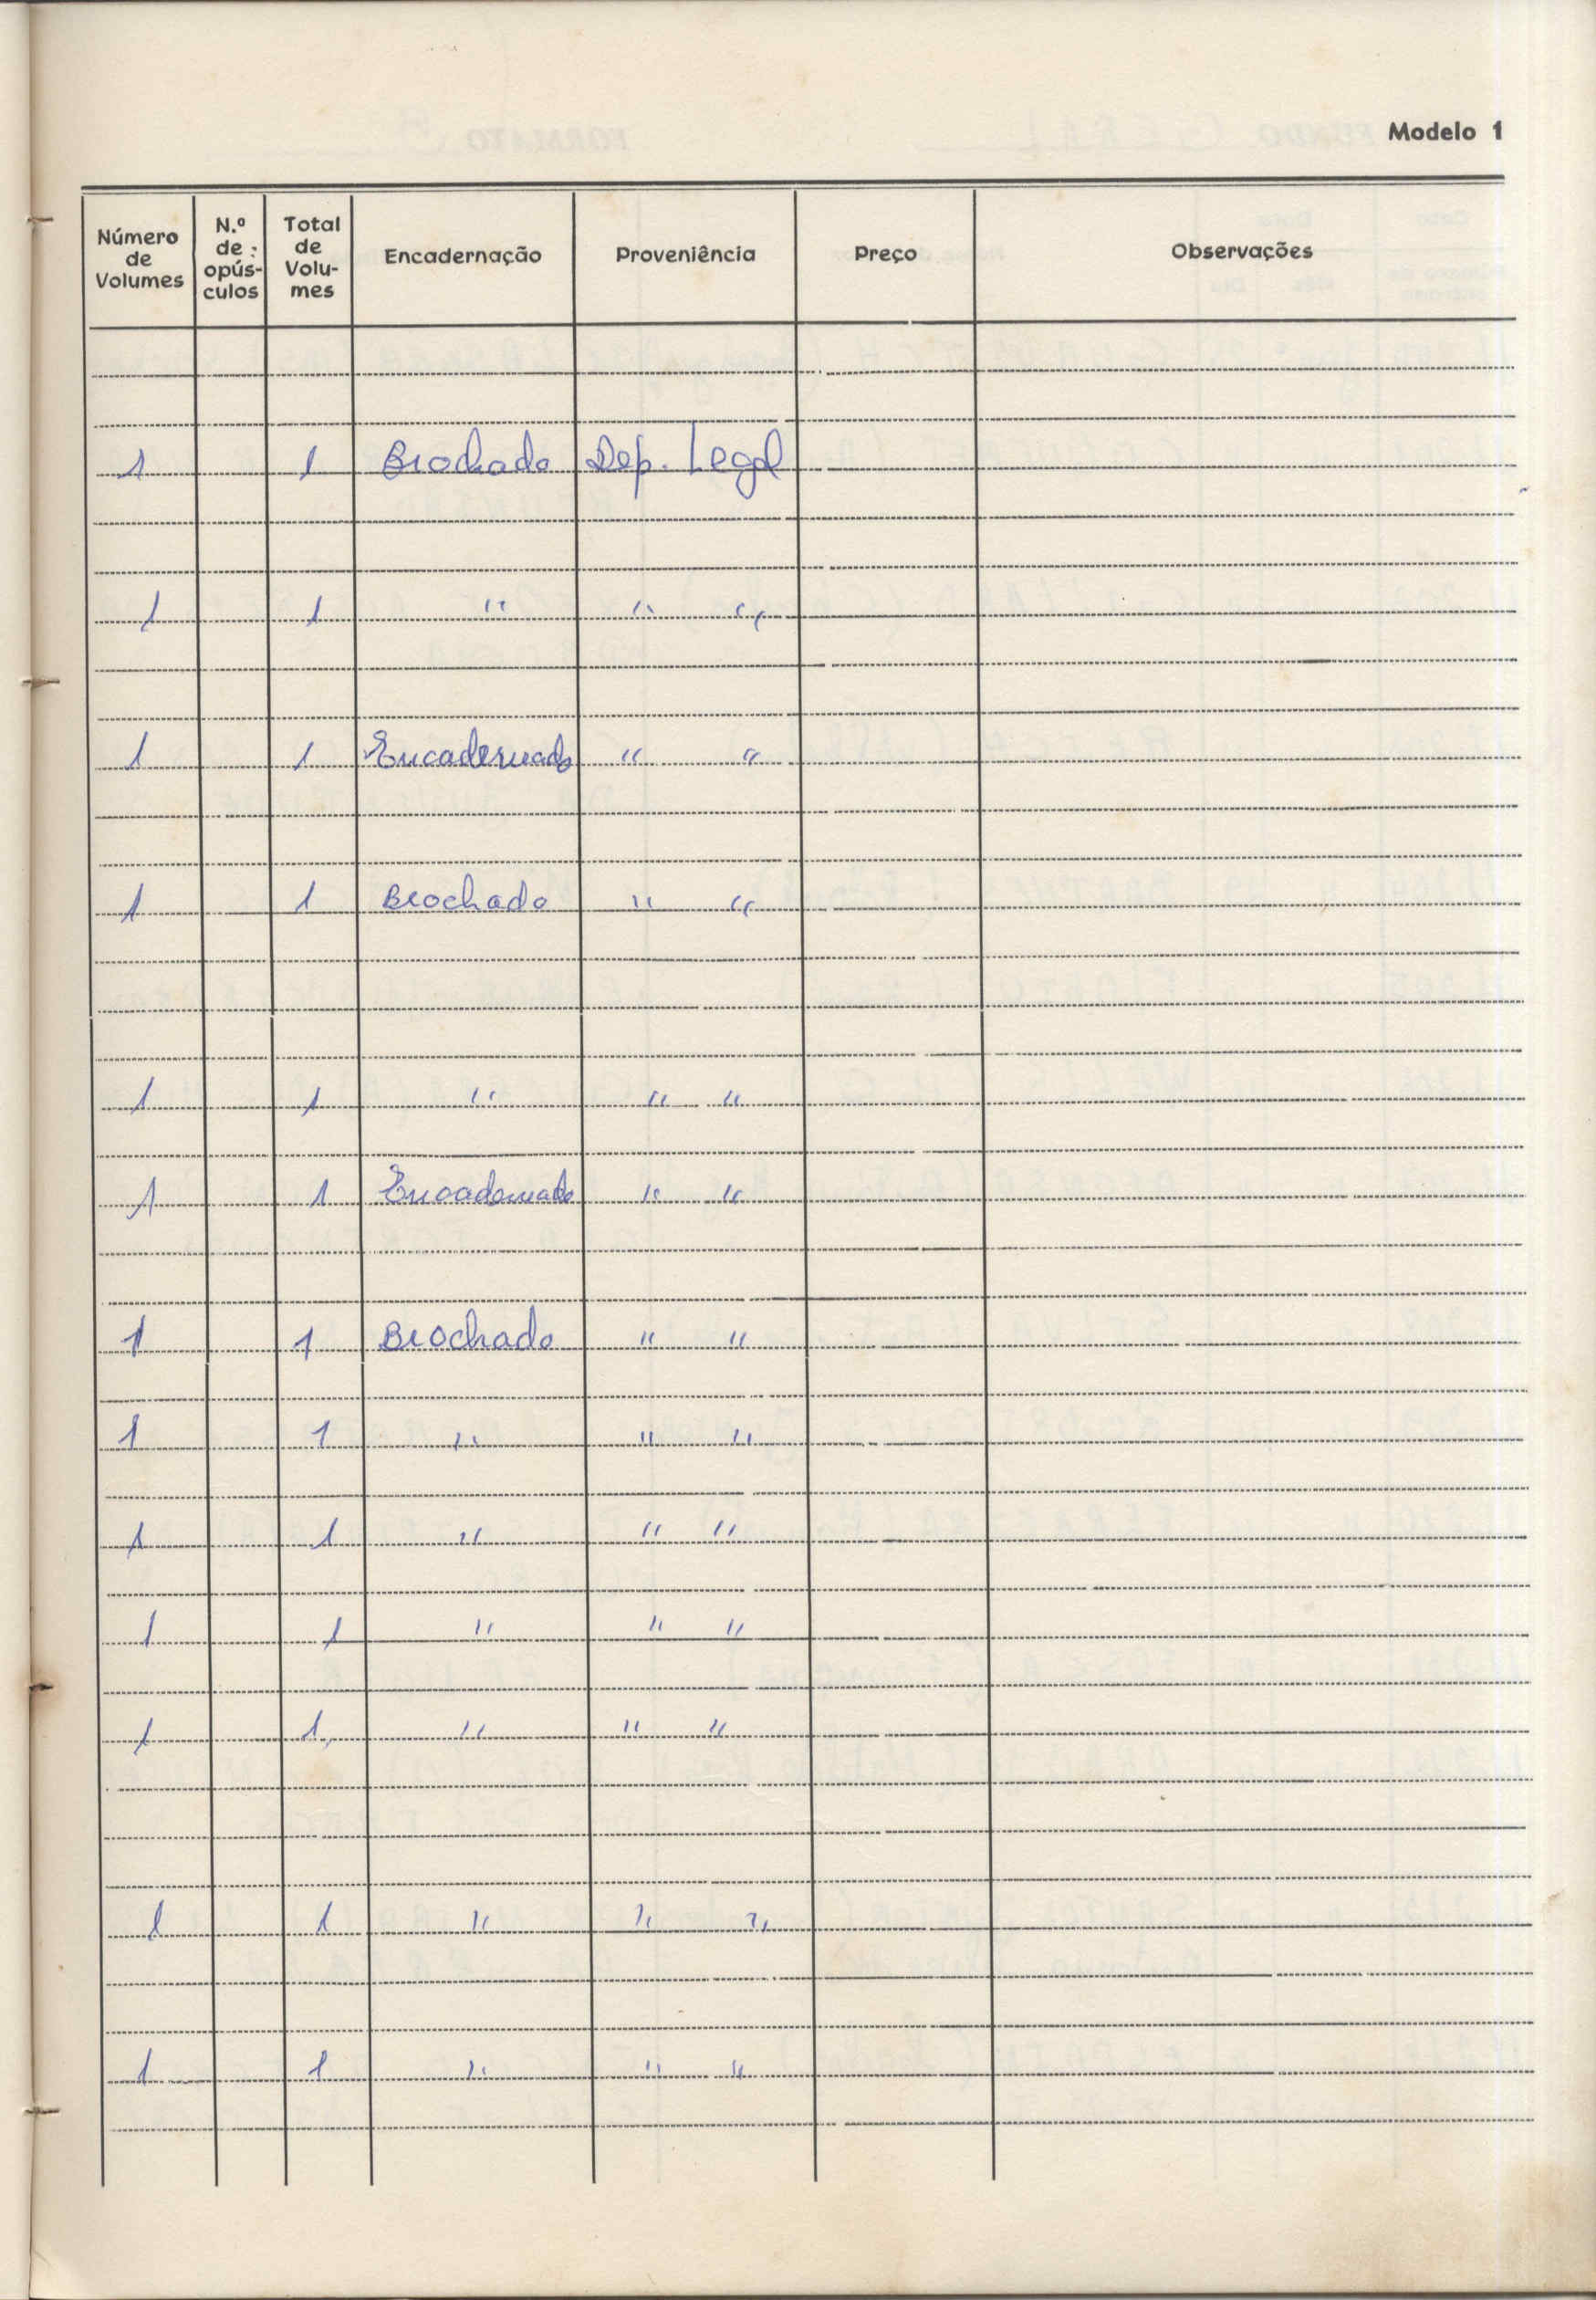 Modelo 1
Número de Volumes N.º de opús-culos Total de Volu-mes Encadernação Proveniência Preço Observações
1 1 Brochado Dep. Legal
1 1 " " "
1 1 Encadernado " "
1 1 Brochado " "
1 1 " " "
1 1 Encadernado " "
1 1 Brochado " "
1 1 " " "
1 1 " " "
1 1 " " "
1 1 " " "
1 1 " " "
1 1 " " "